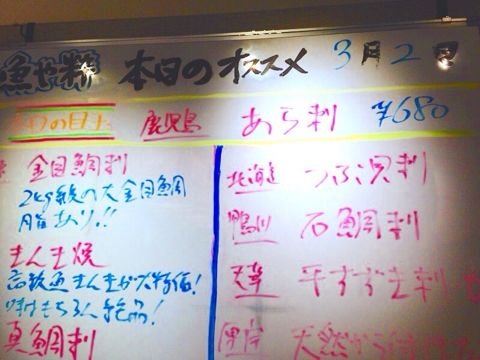 魚や粋 本日のオススメ 3月2日
本日の目玉 鹿児島 あら刺 ¥680
金目鯛刺
2kg級の大金目鯛
脂あり!!
きんき焼
高級魚きんきが大特価!
味はもちろん絶品!
真鯛刺
北海道 つぶ貝刺
鴨川 石鯛刺
天草 平すずき刺
天然から